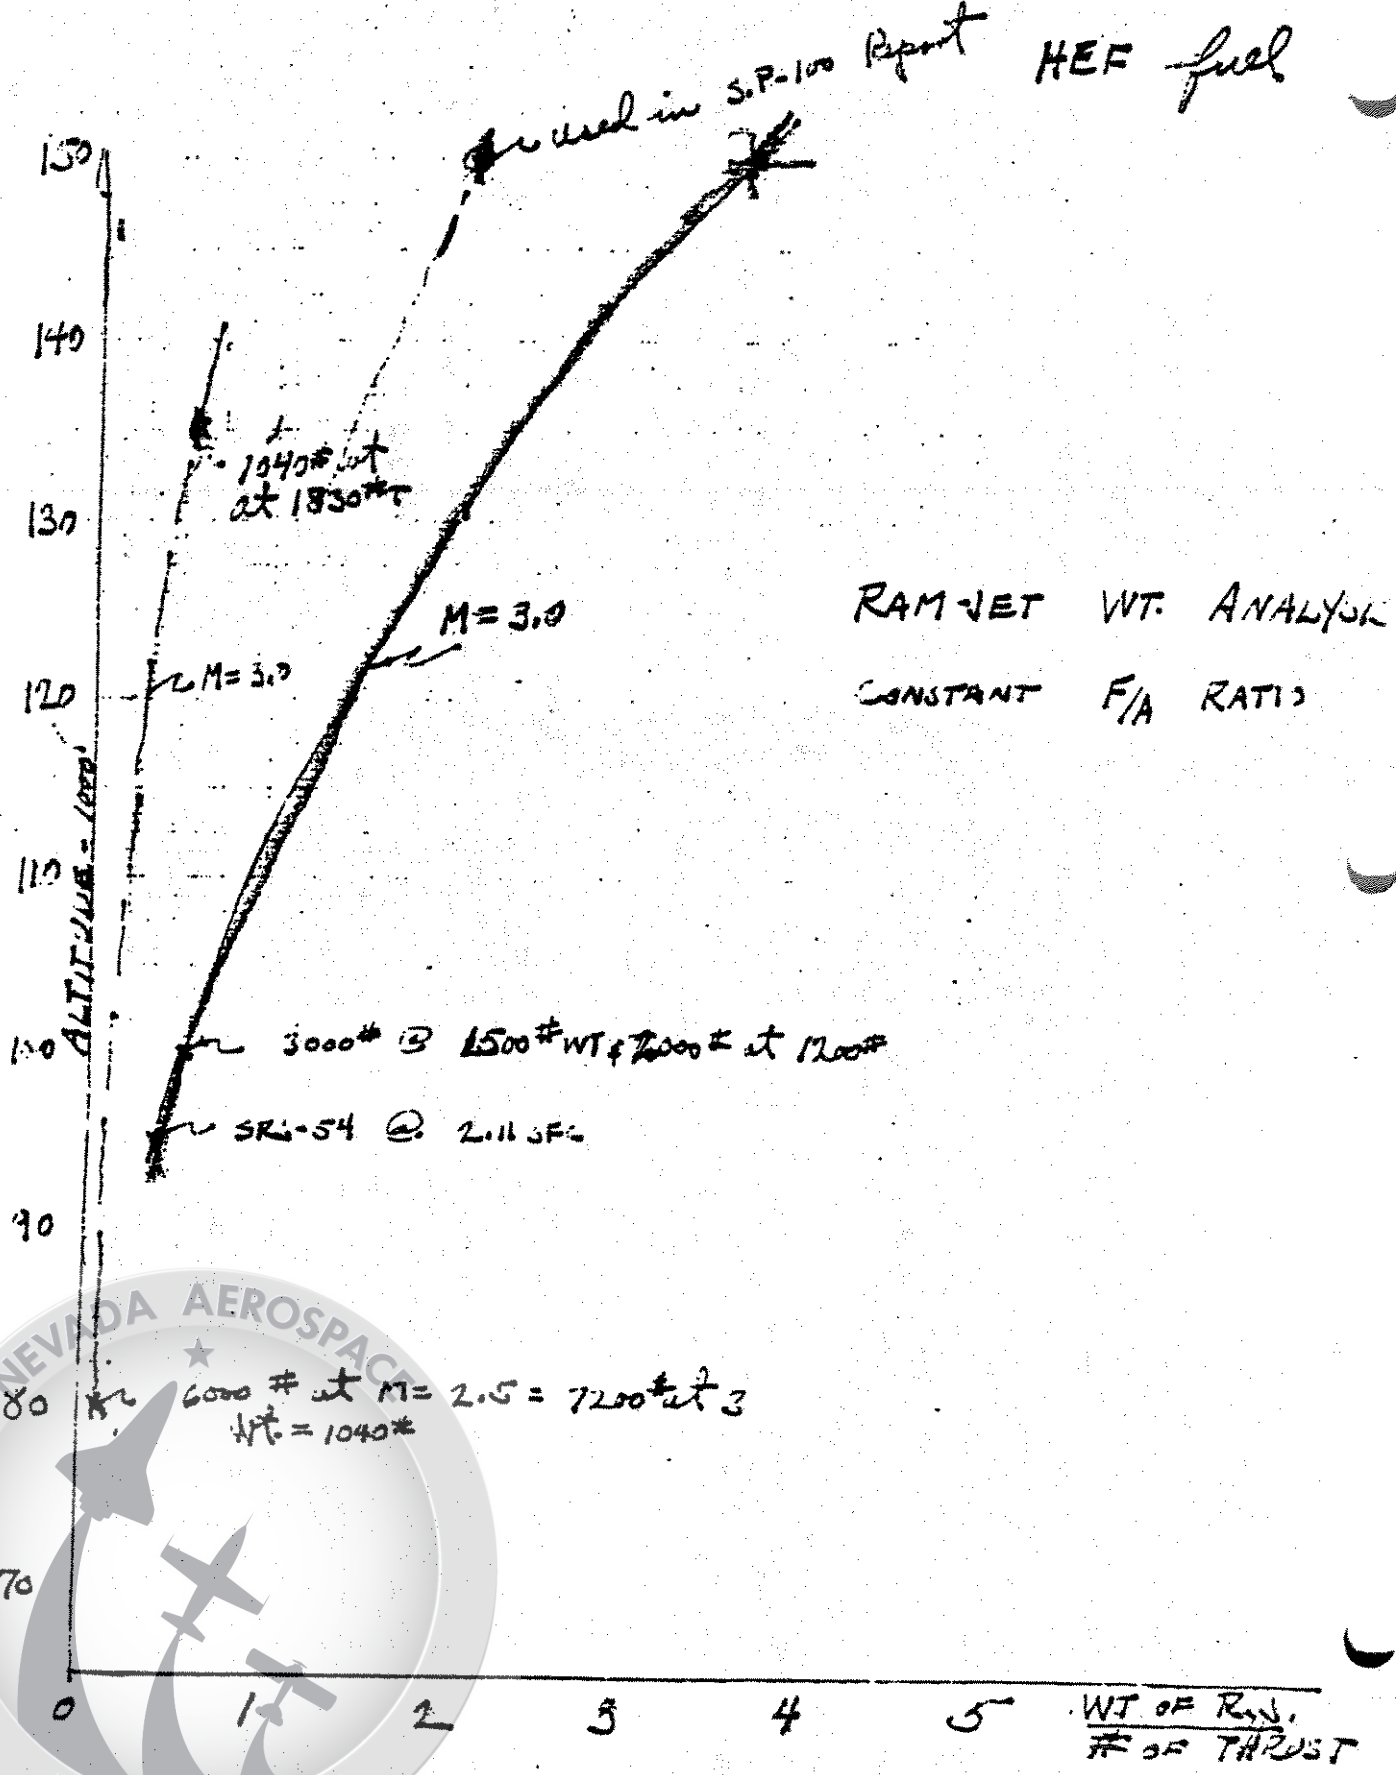 used in S.P-100 Report
HEF fuel
150
140
1040# at
at 1830#T
130
M = 3.0
RAM-JET WT. ANALYSIS
M = 3.0
120
CONSTANT F/A RATIO
ALTITUDE - 1000'
110
100
3000# @ 1500# WT & 2000# at 1200#
@ 2.11 SFC
90
NEVADA AEROSPACE
80
6000 # at M = 2.5 = 7200# at 3
Wt. = 1040#
70
0 1 2 3 4 5
WT OF R.J.
# OF THRUST